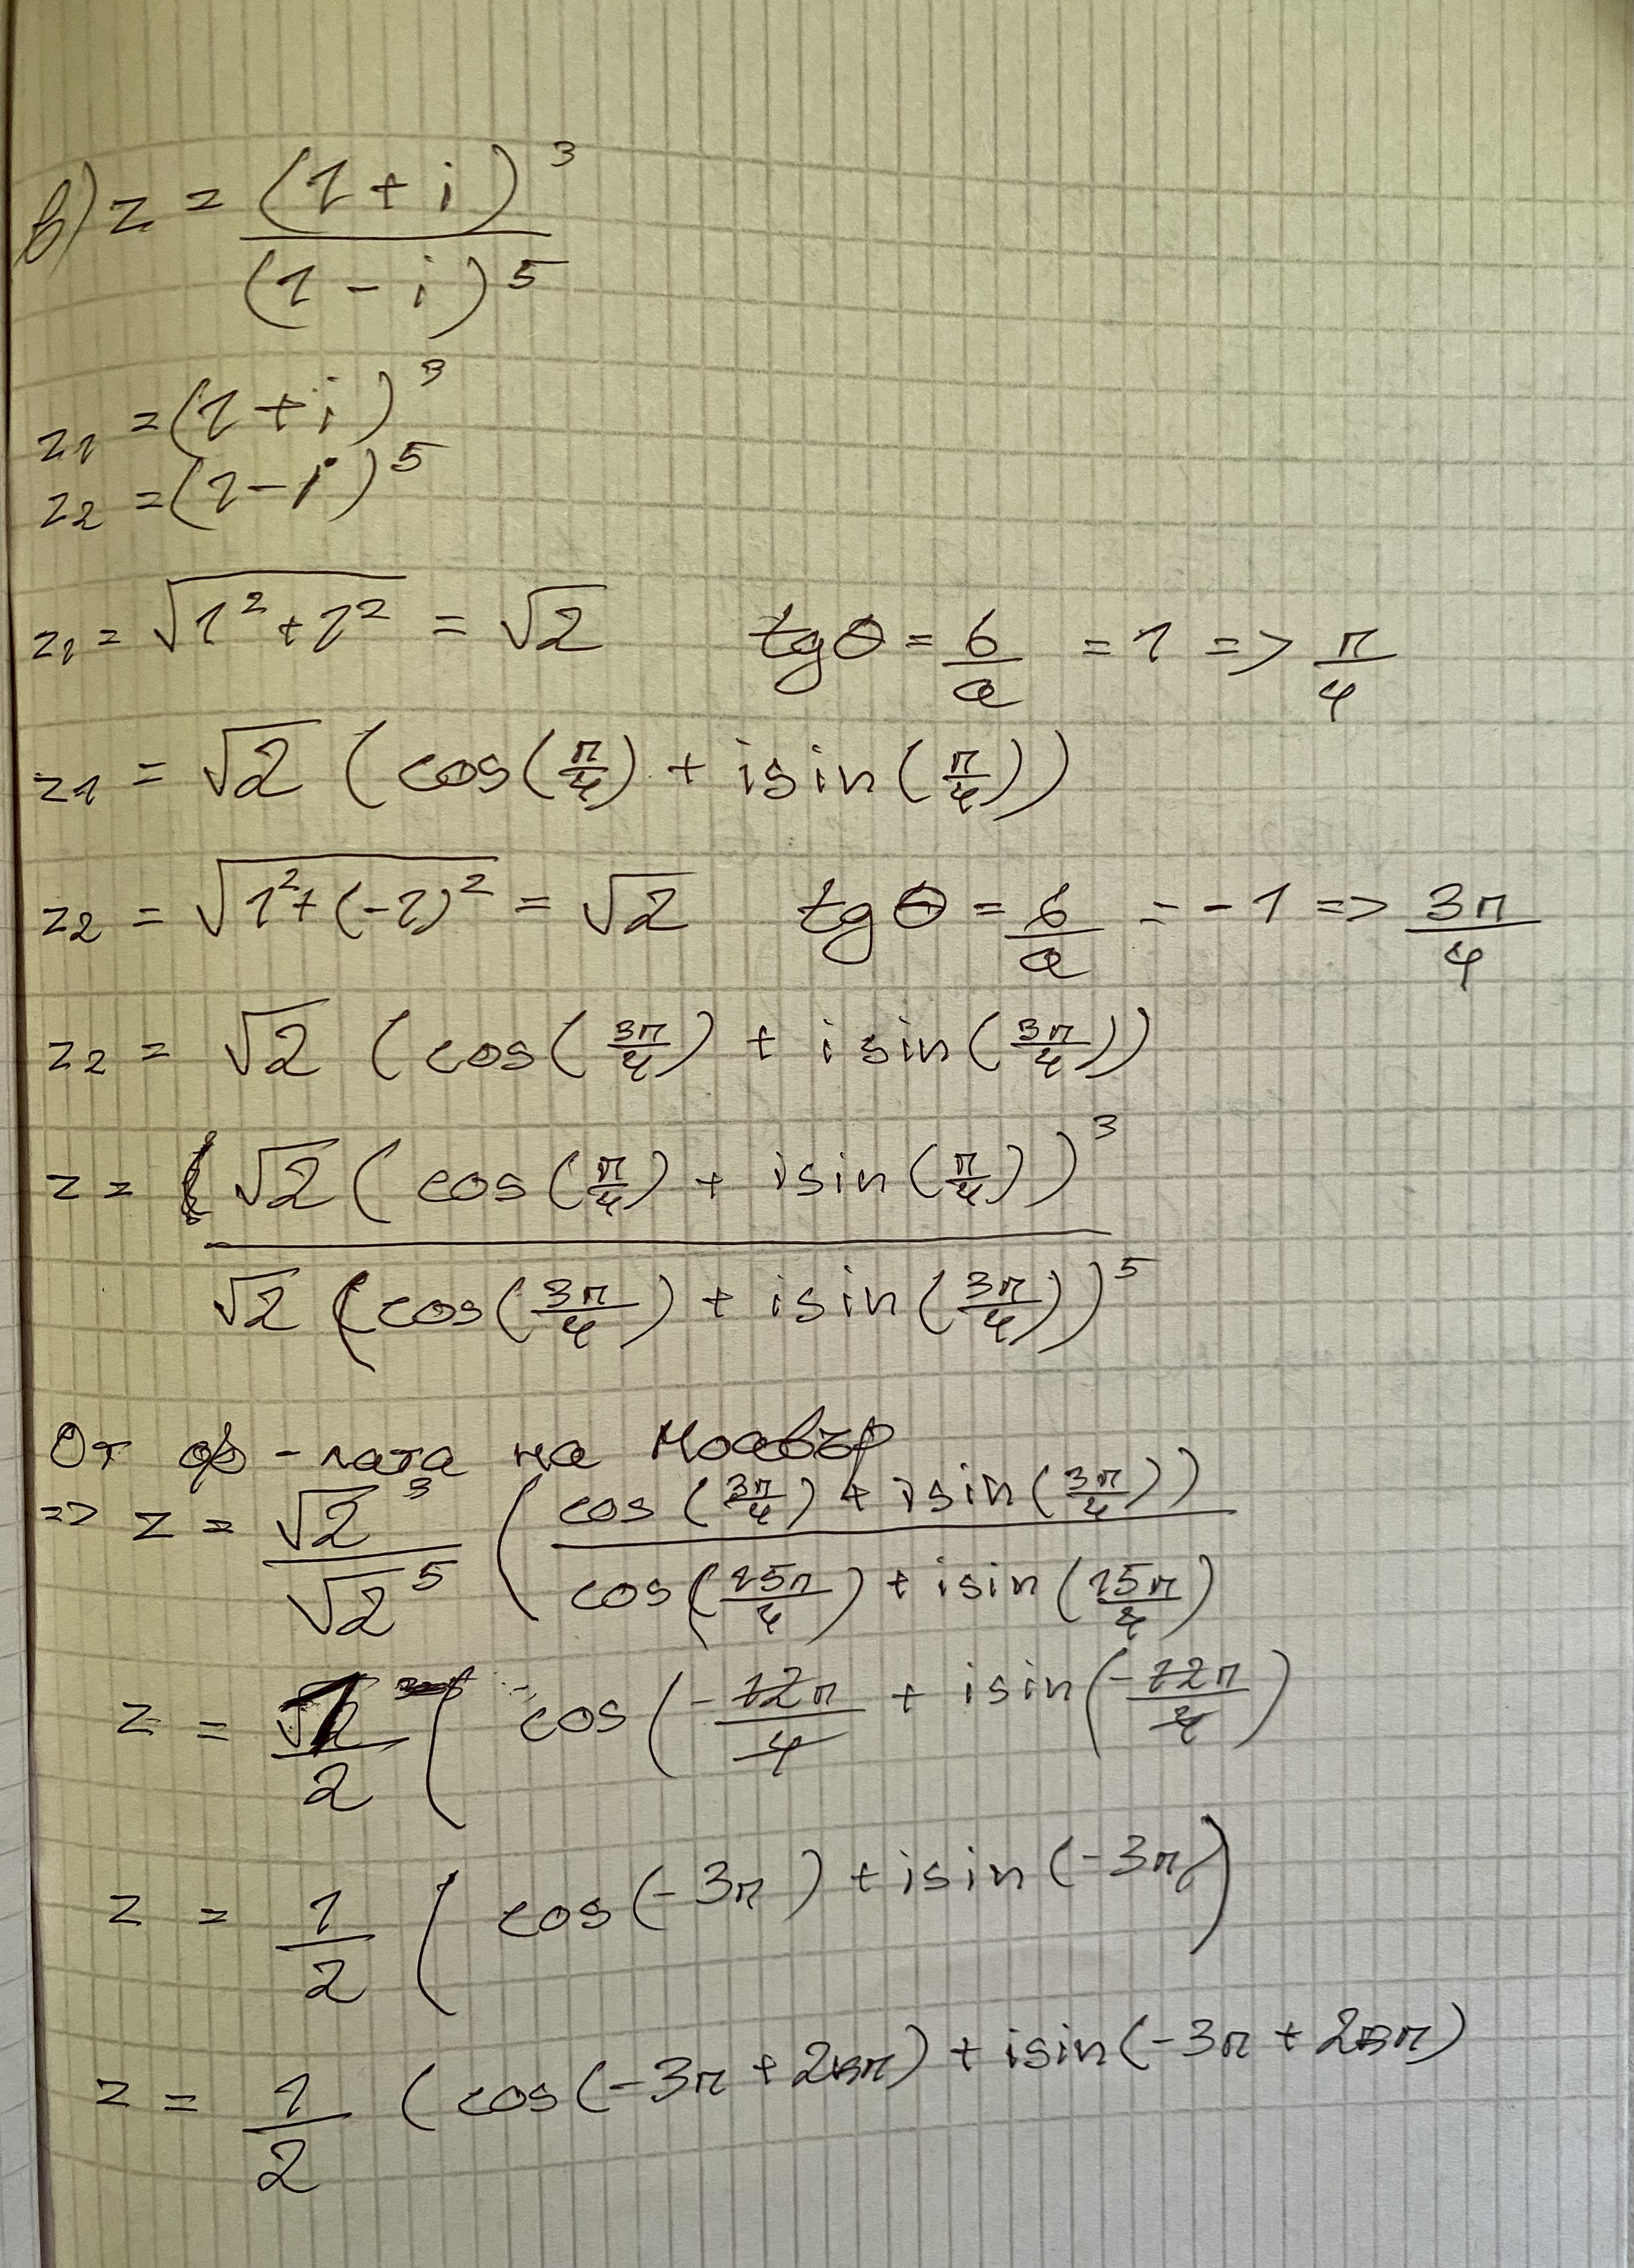 в) z = (1 + i)³ / (1 - i)⁵
z₁ = (1 + i)³
z₂ = (1 - i)⁵
z₁ = √(1² + 1²) = √2 tgθ = b/a = 1 => π/4
z₁ = √2 (cos(π/4) + isin(π/4))
z₂ = √(1² + (-1)²) = √2 tgθ = b/a = -1 => 3π/4
z₂ = √2 (cos(3π/4) + isin(3π/4))
z = √2 (cos(π/4) + isin(π/4))³ / √2 (cos(3π/4) + isin(3π/4))⁵
От ф-лата на Моавър
=> z = √2³/√2⁵ (cos(3π/4) + isin(3π/4)) / cos(15π/4) + isin(15π/4)
z = 1/2 ( cos(-12π/4 + isin(-12π/4)
z = 1/2 ( cos(-3π) + isin(-3π)
z = 1/2 (cos(-3π + 2kπ) + isin(-3π + 2kπ)